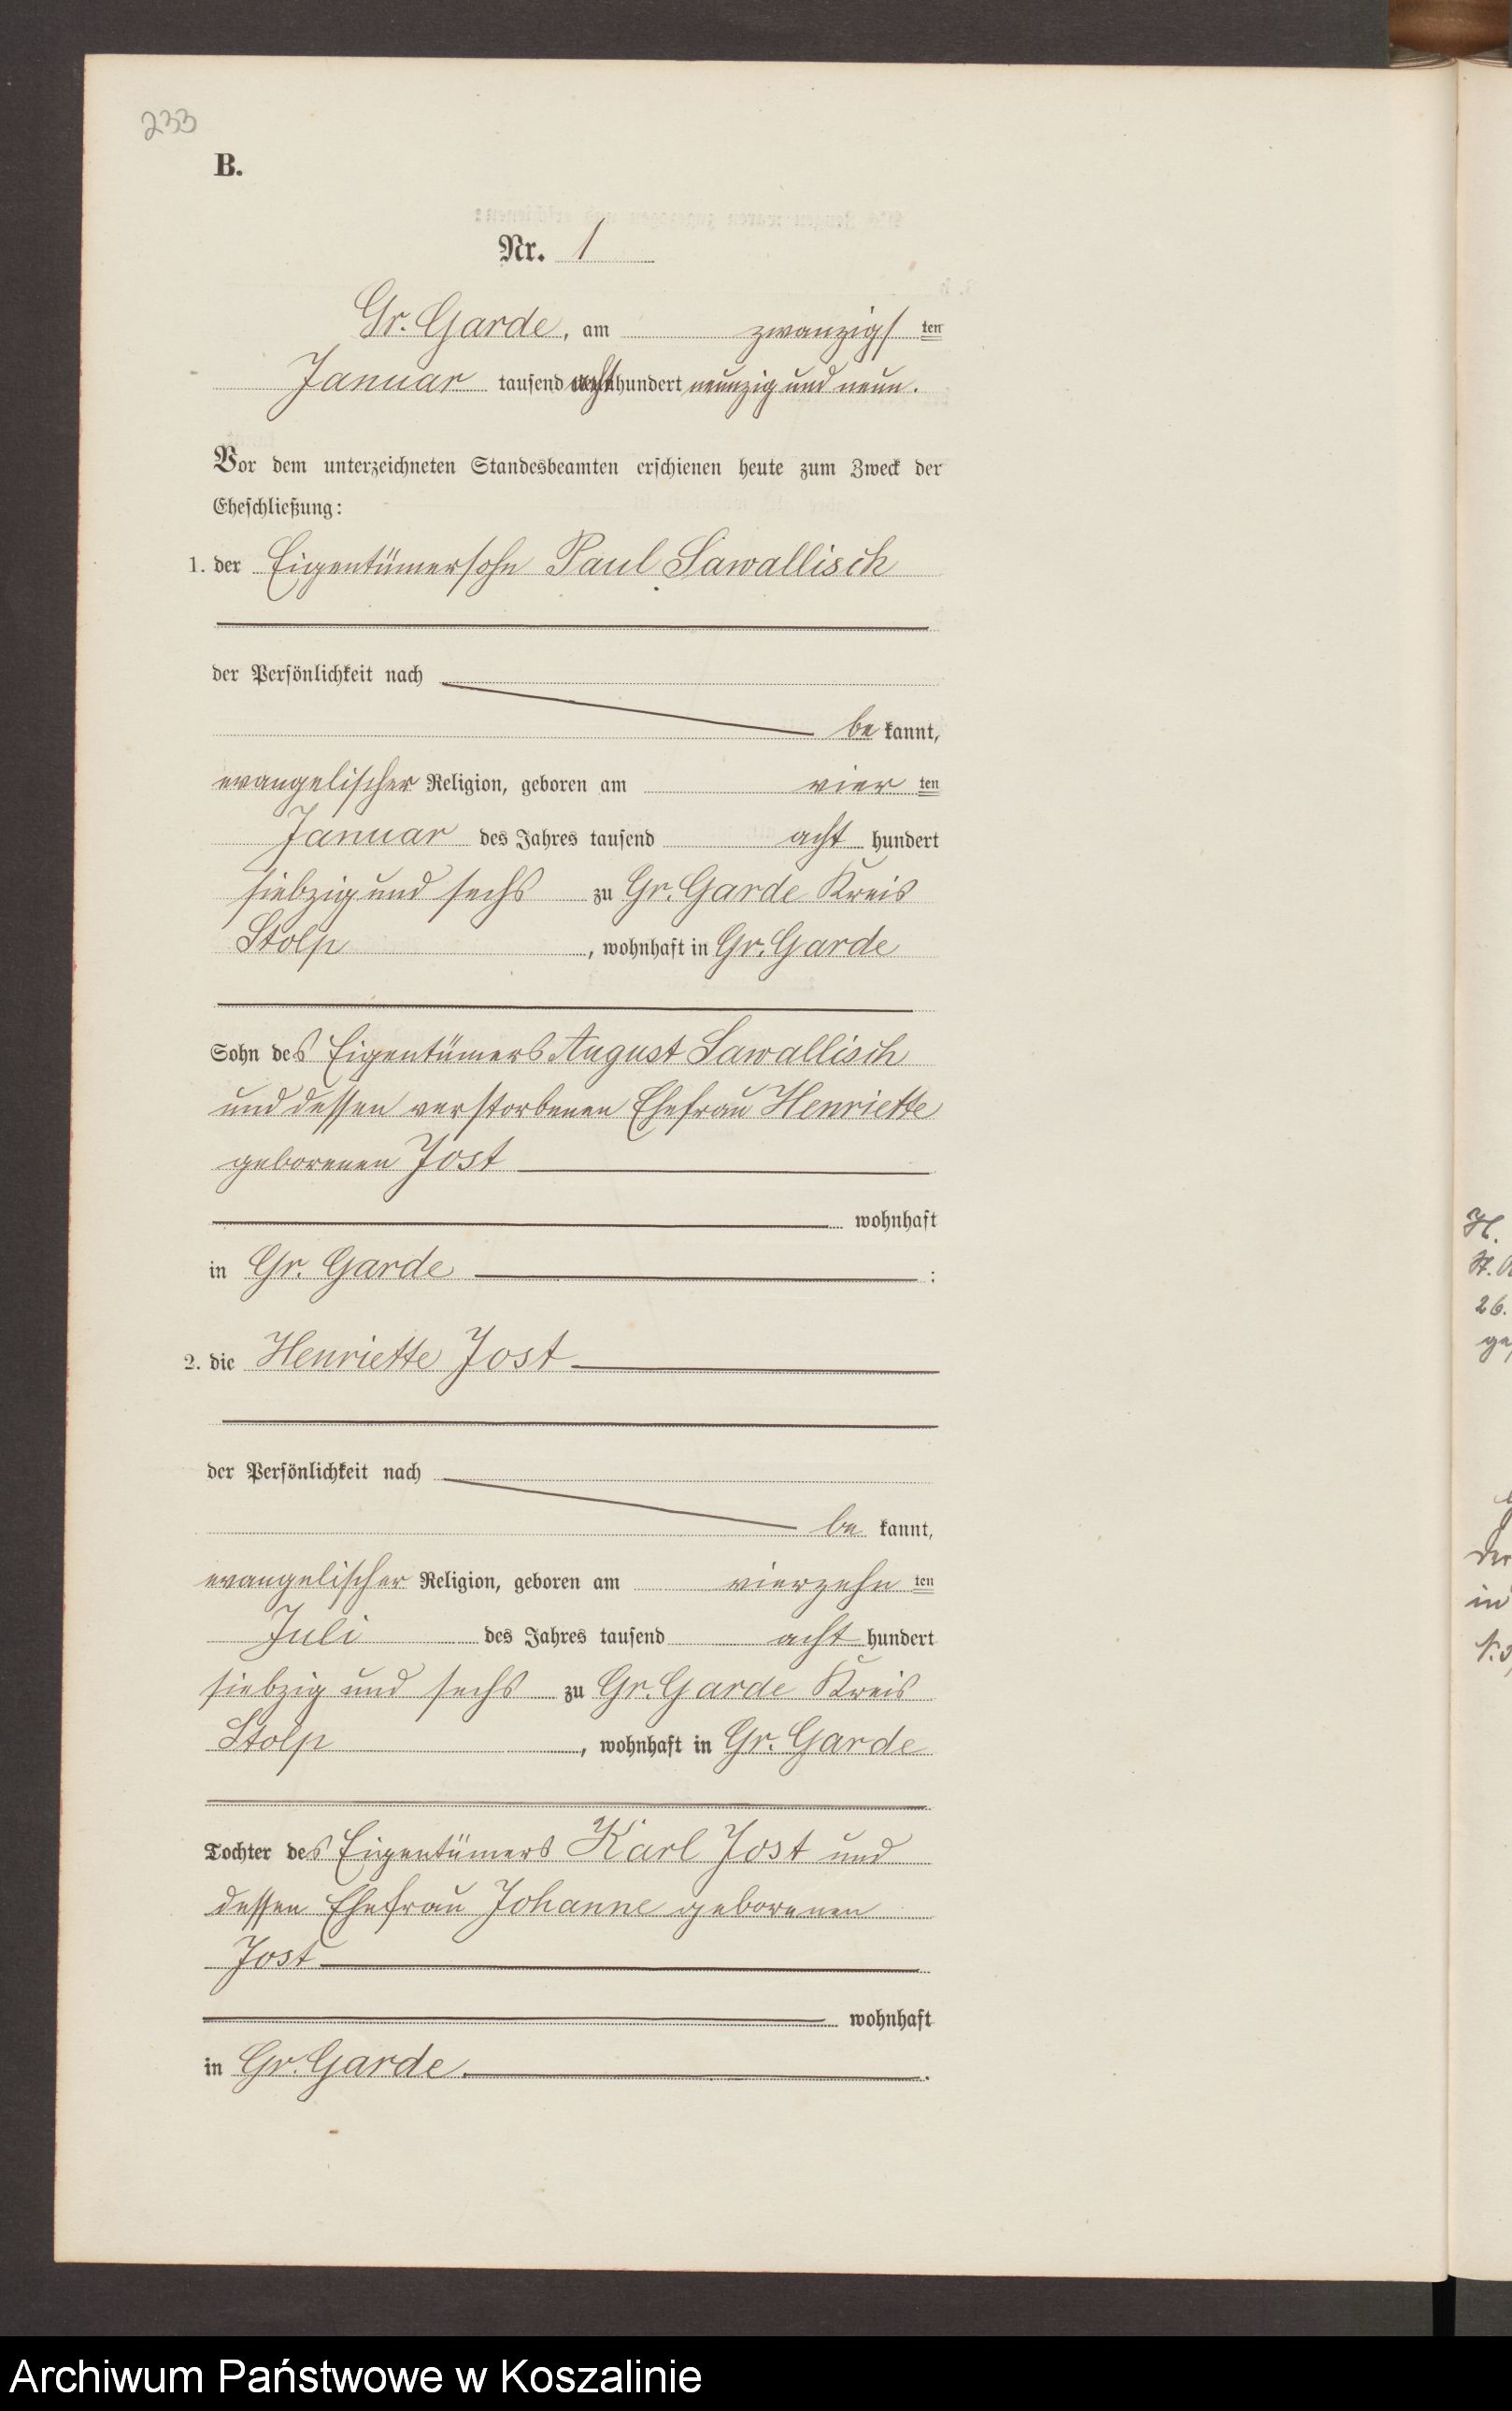 233
B.
Nr. 1
Gr. Garde, am zwanzigsten
Januar tausend achthundert neunzig und neun.
Vor dem unterzeichneten Standesbeamten erschienen heute zum Zweck der
Eheschließung:
1. der Eigentümersohn Paul Sawallisch
der Persönlichkeit nach
be kannt,
evangelischer Religion, geboren am vier ten
Januar des Jahres tausend acht hundert
siebzig und sechs zu Gr. Garde Kreis
Stolp, wohnhaft in Gr. Garde
Sohn des Eigentümers August Sawallisch
und dessen verstorbenen Ehefrau Henriette
geborenen Jost
wohnhaft
in Gr. Garde :
2. die Henriette Jost
der Persönlichkeit nach
be kannt,
evangelischer Religion, geboren am vierzehn ten
Juli des Jahres tausend acht hundert
siebzig und sechs zu Gr. Garde Kreis
Stolp, wohnhaft in Gr. Garde
Tochter des Eigentümers Karl Jost und
dessen Ehefrau Johanne geborenen
Jost
wohnhaft
in Gr. Garde.
H.
26.
der
in
Archiwum Państwowe w Koszalinie